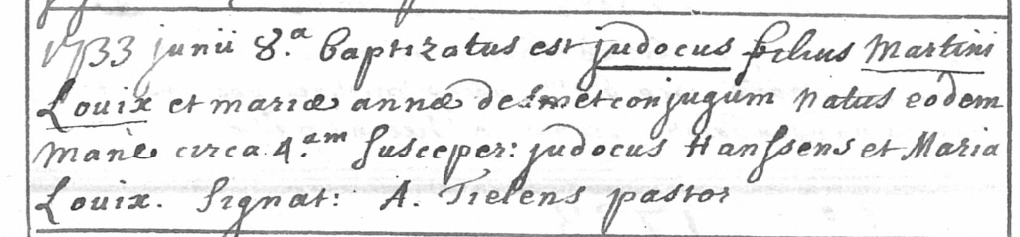 1733 junii 8.a baptizatus est judocus filius Martini
Louix et mariæ annæ desmet conjugum natus eodem
manè circa 4.am susceper: judocus Hanssens et Maria
Louix. signat: A. Tielens pastor